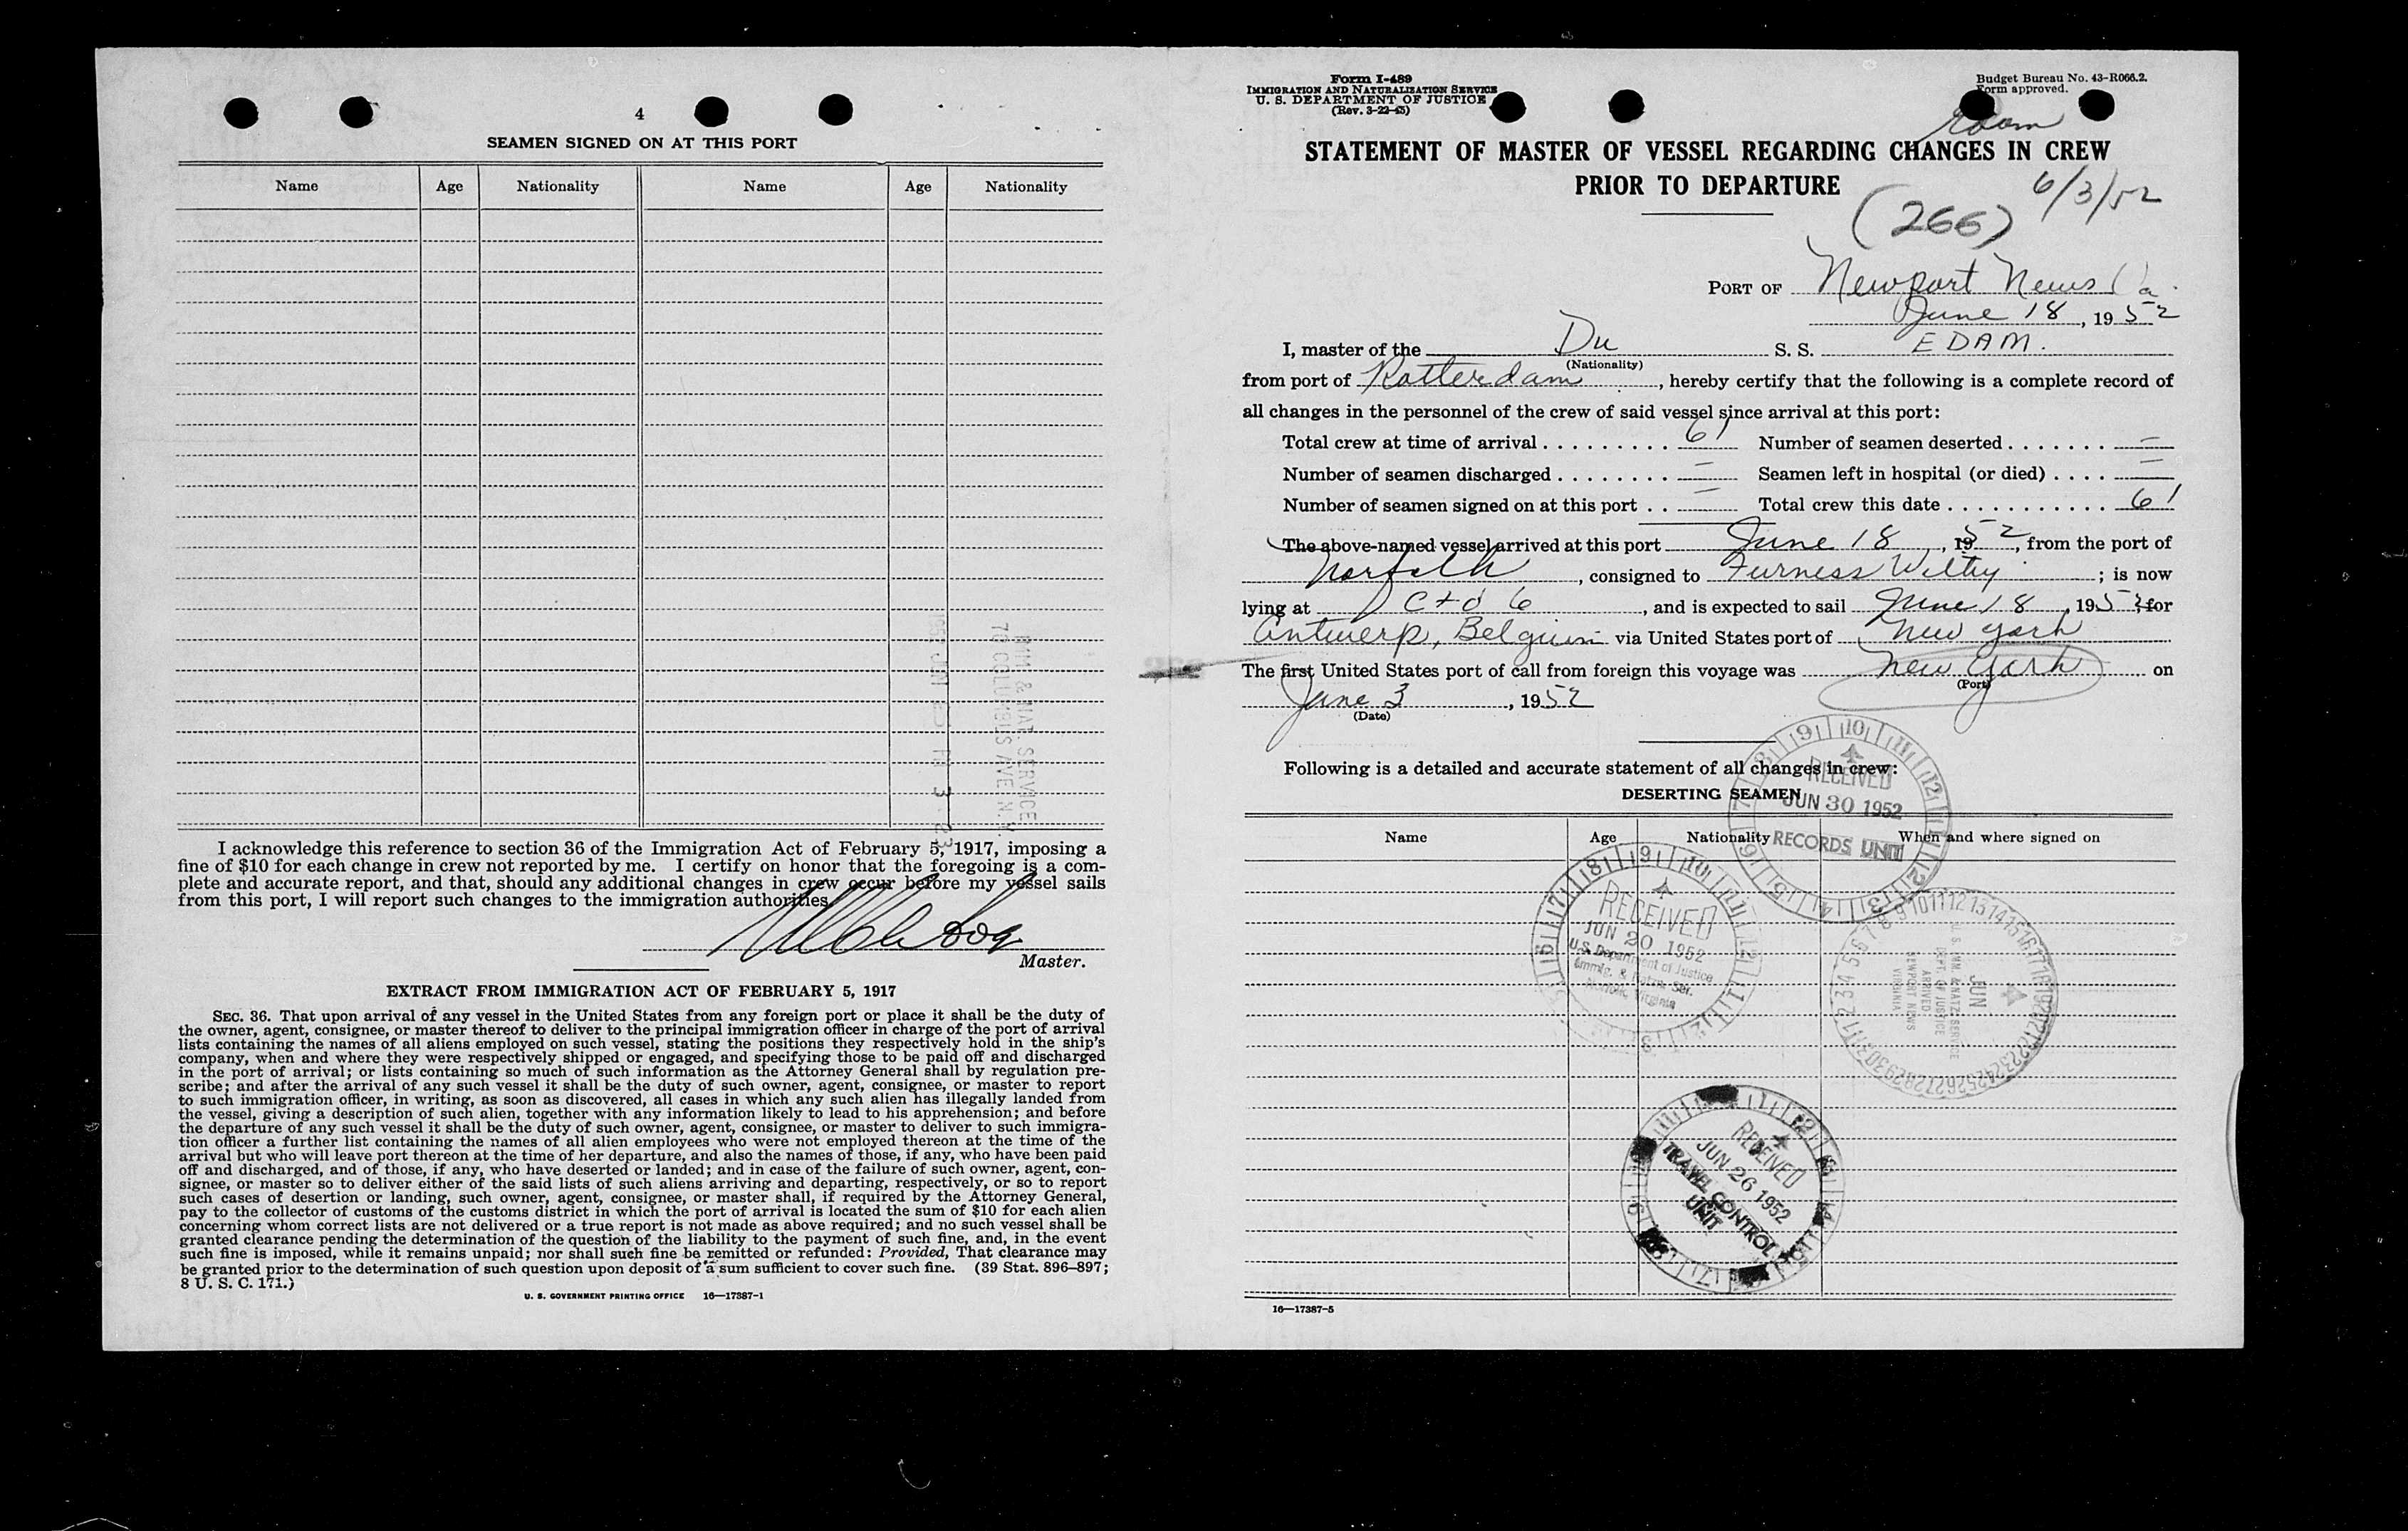 4
SEAMEN SIGNED ON AT THIS PORT
Name Age Nationality Name Age Nationality
IMM. & NAT. SERVICE
70 COLUMBUS AVE N.Y.
I acknowledge this reference to section 36 of the Immigration Act of February 5, 1917, imposing a
fine of $10 for each change in crew not reported by me. I certify on honor that the foregoing is a com-
plete and accurate report, and that, should any additional changes in crew occur before my vessel sails
from this port, I will report such changes to the immigration authorities.
Master.
EXTRACT FROM IMMIGRATION ACT OF FEBRUARY 5, 1917
SEC. 36. That upon arrival of any vessel in the United States from any foreign port or place it shall be the duty of
the owner, agent, consignee, or master thereof to deliver to the principal immigration officer in charge of the port of arrival
lists containing the names of all aliens employed on such vessel, stating the positions they respectively hold in the ship's
company, when and where they were respectively shipped or engaged, and specifying those to be paid off and discharged
in the port of arrival; or lists containing so much of such information as the Attorney General shall by regulation pre-
scribe; and after the arrival of any such vessel it shall be the duty of such owner, agent, consignee, or master to report
to such immigration officer, in writing, as soon as discovered, all cases in which any such alien has illegally landed from
the vessel, giving a description of such alien, together with any information likely to lead to his apprehension; and before
the departure of any such vessel it shall be the duty of such owner, agent, consignee, or master to deliver to such immigra-
tion officer a further list containing the names of all alien employees who were not employed thereon at the time of the
arrival but who will leave port thereon at the time of her departure, and also the names of those, if any, who have been paid
off and discharged, and of those, if any, who have deserted or landed; and in case of the failure of such owner, agent, con-
signee, or master so to deliver either of the said lists of such aliens arriving and departing, respectively, or so to report
such cases of desertion or landing, such owner, agent, consignee, or master shall, if required by the Attorney General,
pay to the collector of customs of the customs district in which the port of arrival is located the sum of $10 for each alien
concerning whom correct lists are not delivered or a true report is not made as above required; and no such vessel shall be
granted clearance pending the determination of the question of the liability to the payment of such fine, and, in the event
such fine is imposed, while it remains unpaid; nor shall such fine be remitted or refunded: Provided, That clearance may
be granted prior to the determination of such question upon deposit of a sum sufficient to cover such fine. (39 Stat. 896–897;
8 U. S. C. 171.)
U. S. GOVERNMENT PRINTING OFFICE 16—17387-1
Form I-489
IMMIGRATION AND NATURALIZATION SERVICE
U. S. DEPARTMENT OF JUSTICE
(Rev. 3-22-45)
Budget Bureau No. 43-R066.2.
Form approved.
room
STATEMENT OF MASTER OF VESSEL REGARDING CHANGES IN CREW
PRIOR TO DEPARTURE
6/3/52
(266)
PORT OF Newport News Va.
June 18, 1952
I, master of the Du S. S. EDAM.
(Nationality)
from port of Rotterdam, hereby certify that the following is a complete record of
all changes in the personnel of the crew of said vessel since arrival at this port:
Total crew at time of arrival 61 Number of seamen deserted —
Number of seamen discharged — Seamen left in hospital (or died) —
Number of seamen signed on at this port — Total crew this date 61
The above-named vessel arrived at this port June 18, 1952, from the port of
Norfolk, consigned to Furness Withy; is now
lying at C+O 6, and is expected to sail June 18, 1952, for
Antwerp, Belgium via United States port of New York
The first United States port of call from foreign this voyage was New York on
(Port)
June 3, 1952
(Date)
Following is a detailed and accurate statement of all changes in crew:
DESERTING SEAMEN
Name Age Nationality When and where signed on
RECEIVED
JUN 30 1952
RECORDS UNIT
RECEIVED
JUN 20 1952
U.S. Department of Justice
Immig. & Natzn. Ser.
Norfolk, Virginia
U. S. IMM. & NATZ. SERVICE
DEPT. OF JUSTICE
ARRIVED
NEWPORT NEWS
VIRGINIA
JUN
RECEIVED
JUN 26 1952
TRAVEL CONTROL
UNIT
16—17387-5